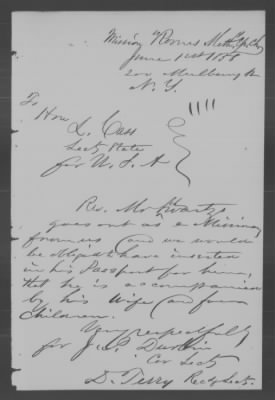 Mission Rooms Meth. Ep. Ch
June 1st 1858
200 Mulberry St
N. Y.
To
Hon
L. Cass
Secty State
for U. S. A
Rev. Mr Swartz
goes out as a Missiony
from us, and we would
be obliged to have inserted
in his Passport for him,
that he is accompanied
by his Wife and four
Children.
Very respectfully
for J. P. Durbin
Cor Secty
D. Terry Recg Secty.